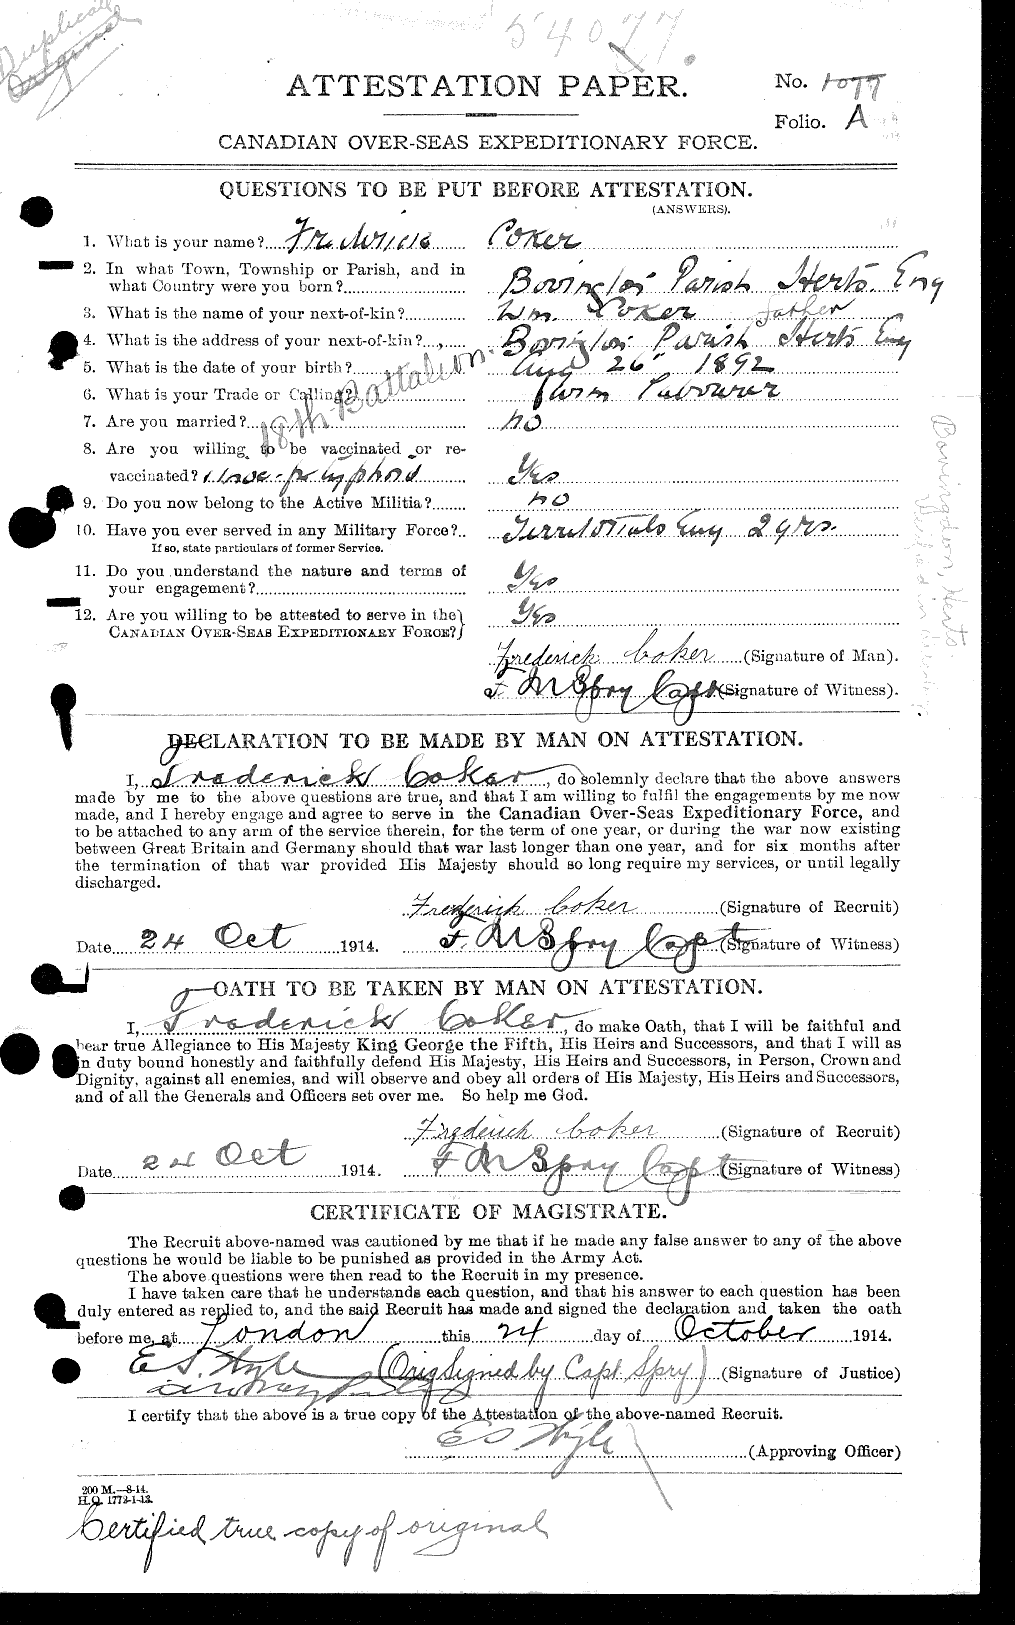 Duplicate
Original
54077.
ATTESTATION PAPER.
No. 1077
Folio. A
CANADIAN OVER-SEAS EXPEDITIONARY FORCE.
QUESTIONS TO BE PUT BEFORE ATTESTATION.
(ANSWERS).
1. What is your name? Frederick Coker
2. In what Town, Township or Parish, and in
what Country were you born? Bovington Parish Herts. Eng
3. What is the name of your next-of-kin? Wm. Coker father
4. What is the address of your next-of-kin? Bovington Parish Herts Eng
5. What is the date of your birth? Aug 26 1892
6. What is your Trade or Calling? Farm Labourer
18th Battalion.
7. Are you married? no
8. Are you willing to be vaccinated or re-
vaccinated? Yes
9. Do you now belong to the Active Militia? no
10. Have you ever served in any Military Force? Territorials Eng 2 yrs.
If so, state particulars of former Service.
11. Do you understand the nature and terms of
your engagement? Yes
12. Are you willing to be attested to serve in the
CANADIAN OVER-SEAS EXPEDITIONARY FORCE? Yes
Bovingdon, Herts
Frederick Coker (Signature of Man).
F. M Spry Capt (Signature of Witness).
DECLARATION TO BE MADE BY MAN ON ATTESTATION.
I, Frederick Coker, do solemnly declare that the above answers
made by me to the above questions are true, and that I am willing to fulfil the engagements by me now
made, and I hereby engage and agree to serve in the Canadian Over-Seas Expeditionary Force, and
to be attached to any arm of the service therein, for the term of one year, or during the war now existing
between Great Britain and Germany should that war last longer than one year, and for six months after
the termination of that war provided His Majesty should so long require my services, or until legally
discharged.
Frederick Coker (Signature of Recruit)
Date 24 Oct 1914. F. M Spry Capt (Signature of Witness)
OATH TO BE TAKEN BY MAN ON ATTESTATION.
I, Frederick Coker, do make Oath, that I will be faithful and
bear true Allegiance to His Majesty King George the Fifth, His Heirs and Successors, and that I will as
in duty bound honestly and faithfully defend His Majesty, His Heirs and Successors, in Person, Crown and
Dignity, against all enemies, and will observe and obey all orders of His Majesty, His Heirs and Successors,
and of all the Generals and Officers set over me. So help me God.
Frederick Coker (Signature of Recruit)
Date 24 Oct 1914. F M Spry Capt (Signature of Witness)
CERTIFICATE OF MAGISTRATE.
The Recruit above-named was cautioned by me that if he made any false answer to any of the above
questions he would be liable to be punished as provided in the Army Act.
The above questions were then read to the Recruit in my presence.
I have taken care that he understands each question, and that his answer to each question has been
duly entered as replied to, and the said Recruit has made and signed the declaration and taken the oath
before me, at London this 24 day of October 1914.
E S. Wigle (Orig Signed by Capt. Spry) (Signature of Justice)
I certify that the above is a true copy of the Attestation of the above-named Recruit.
E S Wigle (Approving Officer)
200 M.—8-14.
H.Q. 1772-1-13.
Certified true copy of original